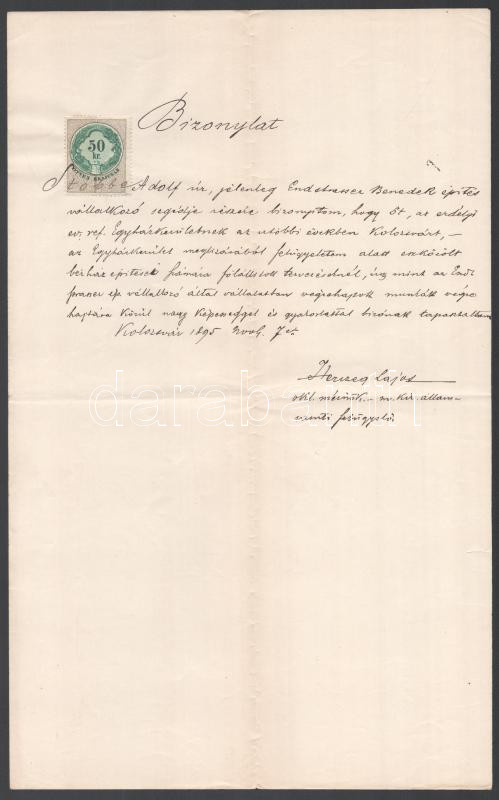 Bizonylat
50
kr.
Stobbe Adolf úr, jelenleg Endstrasser Benedek építés
vállalkozó segédje részére bizonyítom, hogy őt, az erdélyi
ev. ref. Egyházkerületnek az utóbbi években Kolozsvárt, –
az Egyházkerület megbízásából felügyeletem alatt eszközölt
bérház építések számára fölállított tervezésénél, úgy mint az End
strasser ép. vállalkozó által vállalatban végrehajtott munkák végre
hajtása körül nagy képességgel és gyakorlattal bírónak tapasztaltam
Kolozsvár 1895 7én
Herczeg Lajos
okl. mérnök, – m. kir. állam-
felügyelő
darabanth